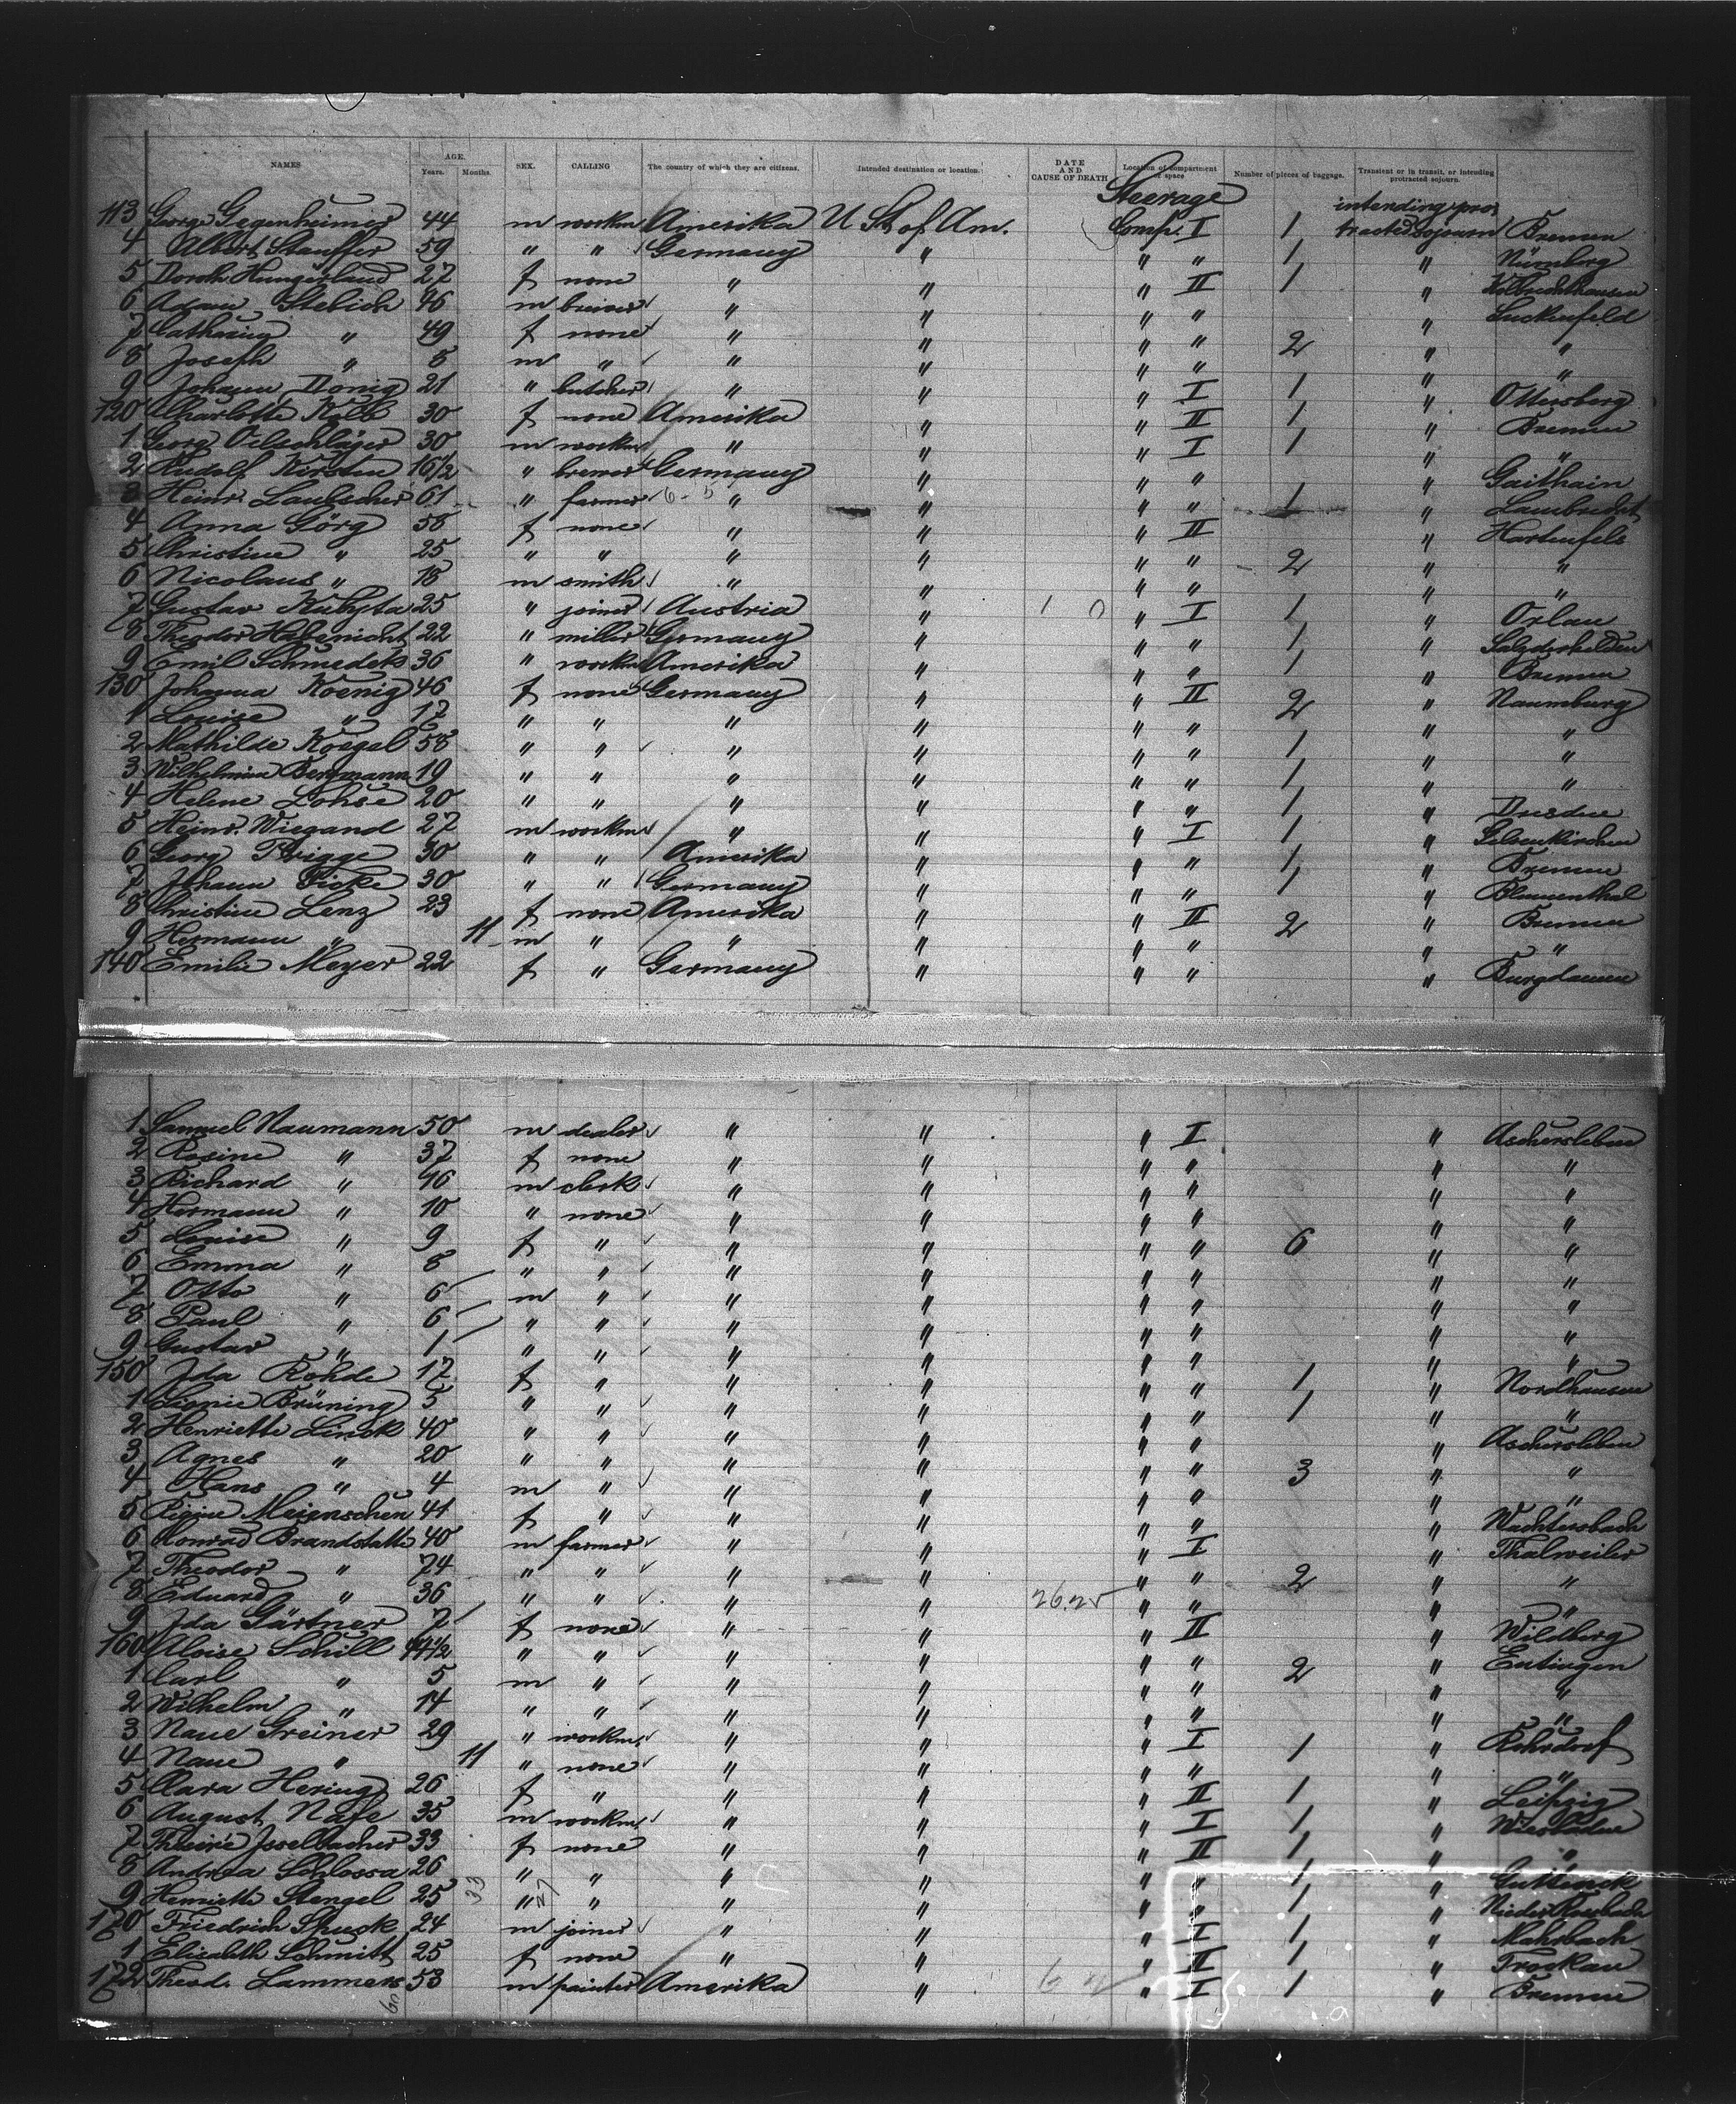 NAMES AGE. Years. Months. SEX. CALLING The country of which they are citizens. Intended destination or location. DATE AND CAUSE OF DEATH Location of compartment or space Number of pieces of baggage. Transient or in transit, or intending protracted sojourn.
Steerage intending pro-
113 George Gegenheimer 44 m workm Amerika U St of Am. Comp. I 1 tracted sojourn Bremen
4 Albert Stauffer 59 " " Germany " " " 1 " Nürnberg
5 Doroth Hungerland 27 f none " " " II 1 "
6 Adam Stebich 46 m brewer " " " " "
7 Catharina " 49 f none " " " " 2 " "
8 Joseph " 8 m " " " " " " "
9 Johann Donig 21 " butcher " " " I 1 " Ottersberg
120 Charlotte Kolb 30 f none Amerika " " II 1 " Bremen
1 Georg Oelschläger 30 m workm " " " I 1 " "
2 Rudolf Kirsten 16 1/2 " brewer Germany " " " " Gaithain
3 Heinr. Laubscher 61 " farmer " " " " 1 "
4 Anna Görg 58 f none " " " II " Hartenfels
5 Christine " 25 " " " " " " 2 " "
6 Nicolaus " 18 m smith " " " " " "
7 Gustav Kuhyta 25 " joiner Austria " " I 1 " Orlau
8 Theodor Habenicht 22 " miller Germany " " " 1 " Salzderhelden
9 Emil Schmedek 36 " workm Amerika " " " 1 " Bremen
130 Johanna Koenig 46 f none Germany " " II 2 " Naumburg
1 Louise " 17 " " " " " " " "
2 Mathilde Koegel 58 " " " " " " 1 " "
3 Wilhelmine Bergmann 19 " " " " " " 1 " "
4 Helene Lohse 20 " " " " " " 1 " Dresden
5 Heinr. Wiegand 27 m workm " " " I 1 " Gelsenkirchen
6 Georg Brigge 30 " " Amerika " " " 1 " Bremen
7 Johann Ficke 30 " " Germany " " " 1 " Blumenthal
8 Christine Lenz 23 f none Amerika " " II 2 " Bremen
9 Hermann " 11 m " " " " " " "
140 Emilie Meyer 22 f " Germany " " " " Burgdamm
1 Samuel Naumann 50 m dealer " " " I " Aschersleben
2 Rosine " 37 f none " " " " " "
3 Richard " 16 m clerk " " " " " "
4 Hermann " 10 " none " " " " " "
5 Louise " 9 f " " " " " 6 " "
6 Emma " 8 " " " " " " " "
7 Otto " 6 m " " " " " " "
8 Paul " 6 " " " " " " " "
9 Gustav " 1 " " " " " " " "
150 Ida Rohde 17 f " " " " " 1 " Nordhausen
1 Leonie Brüning 5 " " " " " " 1 " "
2 Henriette Linck 40 " " " " " " " Aschersleben
3 Agnes " 20 " " " " " " 3 " "
4 Hans " 4 m " " " " " " "
5 Regine Meienschen 41 f " " " " " " Wachtersbach
6 Konrad Brandstatte 40 m farmer " " " I " Thalweiler
7 Theodor " 74 " " " " " " 2 " "
8 Eduard " 36 " " " " " " " "
9 Ida Gärtner 7 f none " " " II " Wildberg
160 Aloise Schill 44 1/2 " " " " " " 2 " Eutingen
1 Carl " 5 m " " " " " " "
2 Wilhelm " 14 " " " " " " " "
3 Naue Greiner 29 " workm " " " I 1 " Rohrdorf
4 Naue " 11 " none " " " " " "
5 Clara Hering 26 f " " " " II 1 " Leipzig
6 August Nafe 35 m workm " " " I 1 " Wiesbaden
7 Isselbacher 33 f none " " " II 1 " "
8 Andrea Schlossa 26 " " " " " " 1 "
9 Henriette Stengel 25 " " " " " " 1 "
170 Friedrich Stuck 24 m joiner " " " I 1 " Mahrbach
1 Elisabeth Schmitt 25 f none " " " II 1 " Trockau
172 Theod. Lammers 53 m painter Amerika " " I 1 " Bremen